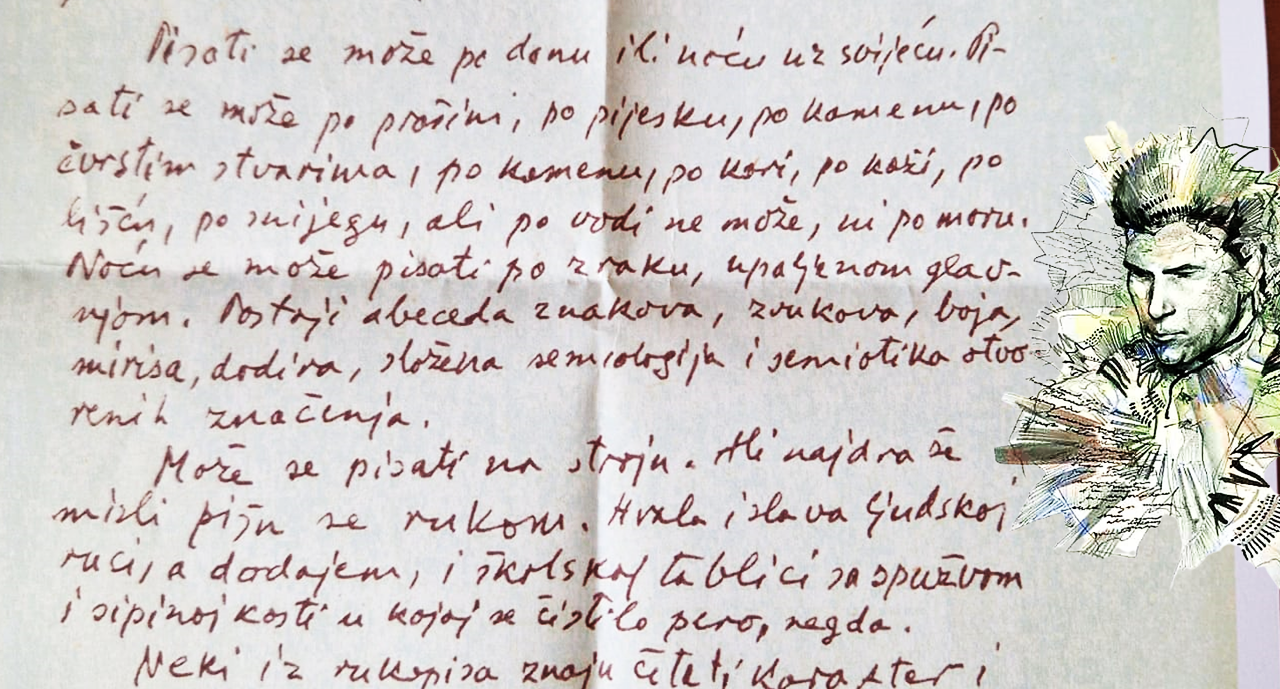 Pisati se može po danu ili noću uz svijeću. Pi-
sati se može po prašini, po pijesku, po kamenu, po
čvrstim stvarima, po kamenu, po kori, po koži, po
lišću, po snijegu, ali po vodi ne može, ni po moru.
Noću se može pisati po zraku, upaljenom glav-
njom. Postoji abeceda znakova, zvukova, boja,
mirisa, dodira, složena semiologija i semiotika otvo-
renih značenja.
Može se pisati na stroju. Ali najdraže
misli pišu se rukom. Hvala i slava ljudskoj
ruci, ja dodajem, i školskoj tablici sa spužvom
i sipinoj kosti u kojoj se čistilo pero, negda.
Neki iz rukopisa znaju čitati karakter i